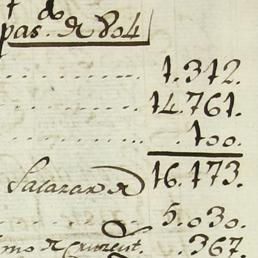 do
pas. de 804
1.312.
14.761.
.100.
Salazar de 16.173.
5.030.
.367.